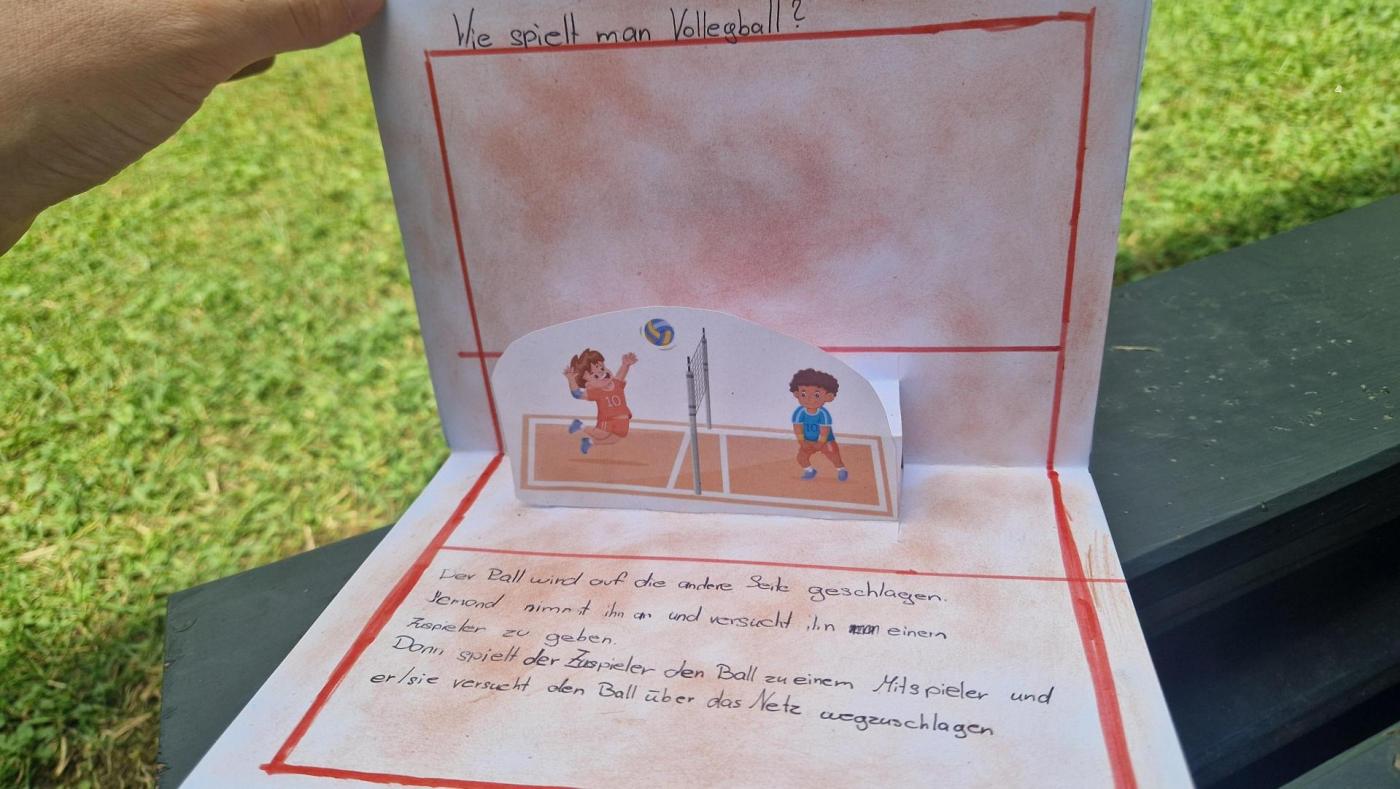 Wie spielt man Volleyball?
10
10
Der Ball wird auf die andere Seite geschlagen.
Jemand nimmt ihn an und versucht ihn einem
Zuspieler zu geben.
Dann spielt der Zuspieler den Ball zu einem Mitspieler und
er/sie versucht den Ball über das Netz wegzuschlagen